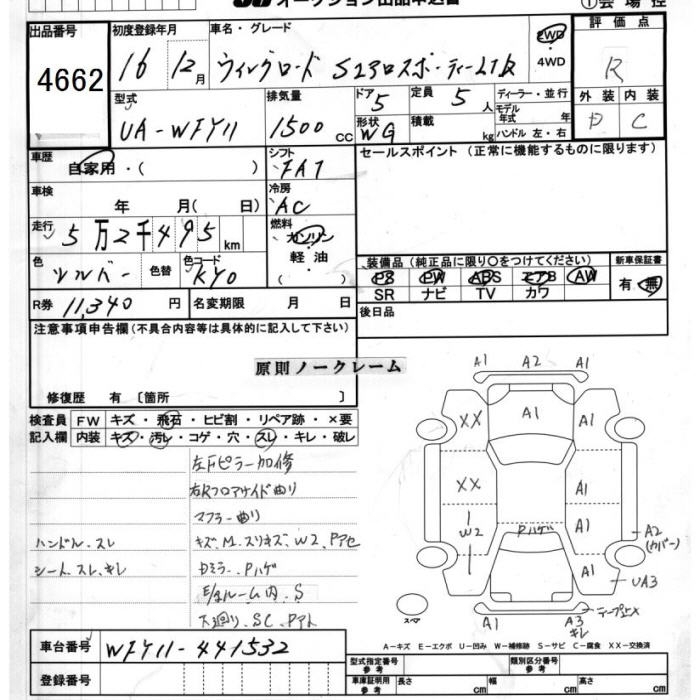 オークション出品申込書
①会場控
出品番号 4662
初度登録年月 16 12月
車名・グレード ウィングロード Sエアロスポーティー
2WD・4WD
評価点 R
外装 D 内装 C
型式 UA-WFY11
排気量 1500cc
ドア 5 形状 WG
定員 5人 積載 kg
ディーラー・並行
モデル年式 年
ハンドル 左・右
車歴 自家用・( )
シフト FAT
セールスポイント (正常に機能するものに限ります)
車検 年 月( 日)
冷房 AC
走行 5万2千495km
燃料 ガソリン・軽油・( )
色 シルバー 色替 色コード KY0
装備品(純正品に限り○をつけてください) 新車保証書
PS PW ABS エアB AW 有・無
SR ナビ TV カワ
R券 11,340円 名変期限 月 日
後日品
注意事項申告欄(不具合内容等は具体的に記入して下さい)
原則ノークレーム
修復歴 有〔箇所 〕
検査員記入欄 FW キズ・飛石・ヒビ割・リペア跡・×要
内装 キズ・汚レ・コゲ・穴・スレ・キレ・破レ
左Fピラー加修
右Rフロアサイド曲り
マフラー曲り
ハンドル.スレ
キズ.M.スリキズ.W2.Pアセ
シート.スレ.キレ
Dミラー.Pハゲ
E/gルーム内.S
下廻り.SC.Pアト
A1 A2 A1
XX A1 A1
XX A1
W2 Pハゲ A1
A2(カバー)
A1
UA3
テープ上X
スペア
A1 A3キレ
A－キズ E－エクボ U－凹み W－補修跡 S－サビ C－腐食 XX－交換済
車台番号 WFY11-441532
登録番号
型式指定番号参考 類別区分番号参考
車庫証明用参考 長さ cm 幅 cm 高さ cm